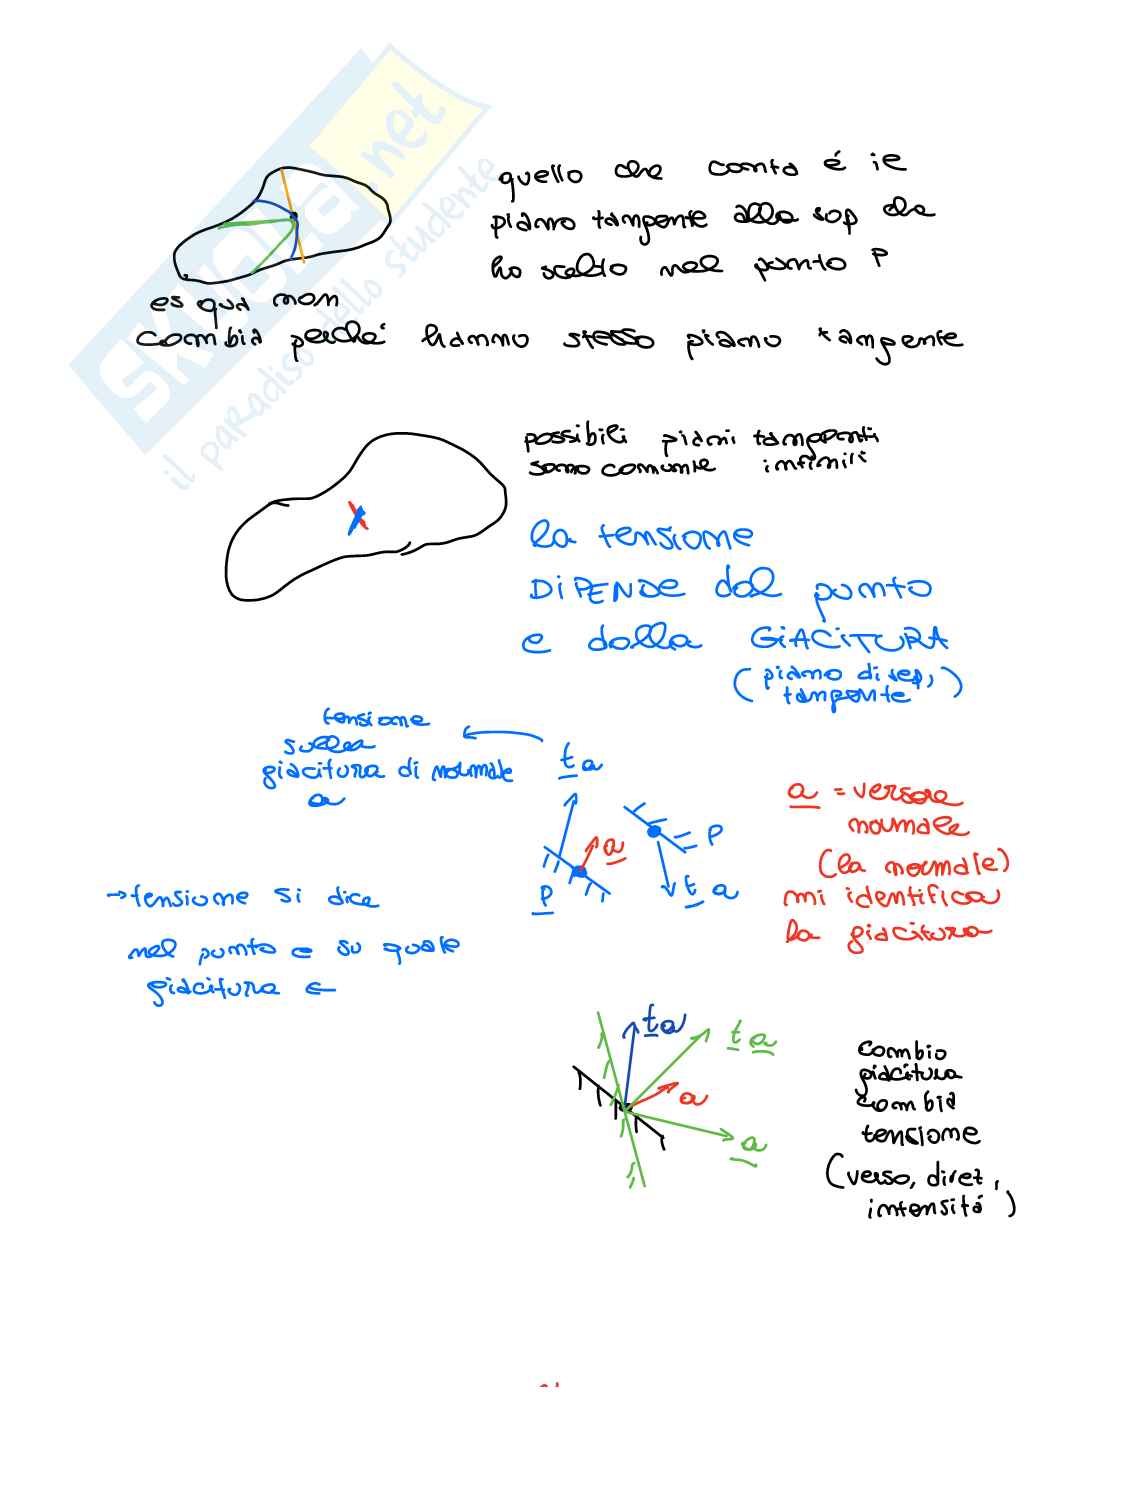 quello che conta é il
piano tangente alla sup che
ho scelto nel punto P
es qua non
cambia perché hanno stesso piano tangente
possibili piani tangenti
sono comunque infiniti
la tensione
DIPENDE dal punto
e dalla GIACITURA
(piano di sep, tangente)
tensione
sulla
giacitura di normale
a
t a
a = versore
normale
(la normale)
mi identifica
la giacitura
a
P
P
t a
→ tensione si dice
nel punto e su quale
giacitura ←
t a
t a
a
a
cambio
giacitura
cambia
tensione
(verso, direz,
intensitá)
SKUOLA.net
il paradiso dello studente